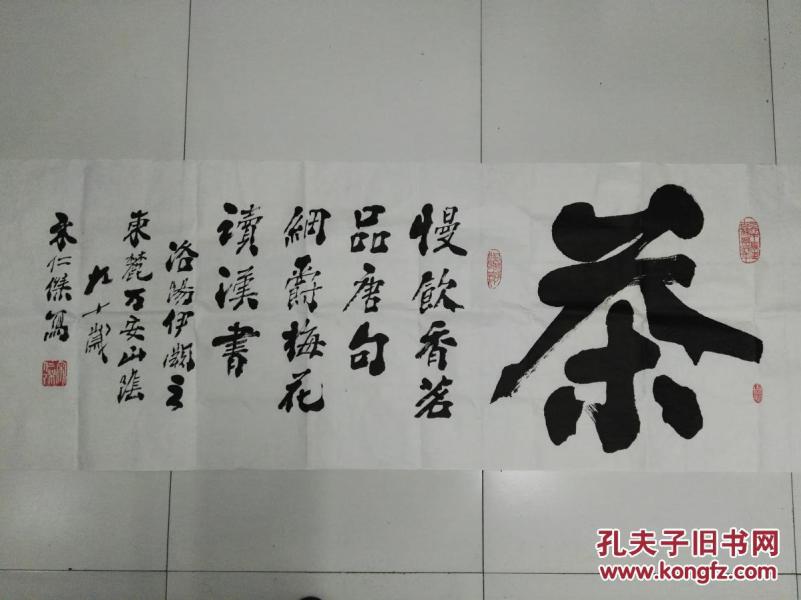 茶
慢飲香茗
品唐句
細嚼梅花
讀漢書
洛陽伊闕之
東麓万安山陰
九十歲
仁傑寫
孔夫子旧书网
www.kongfz.com